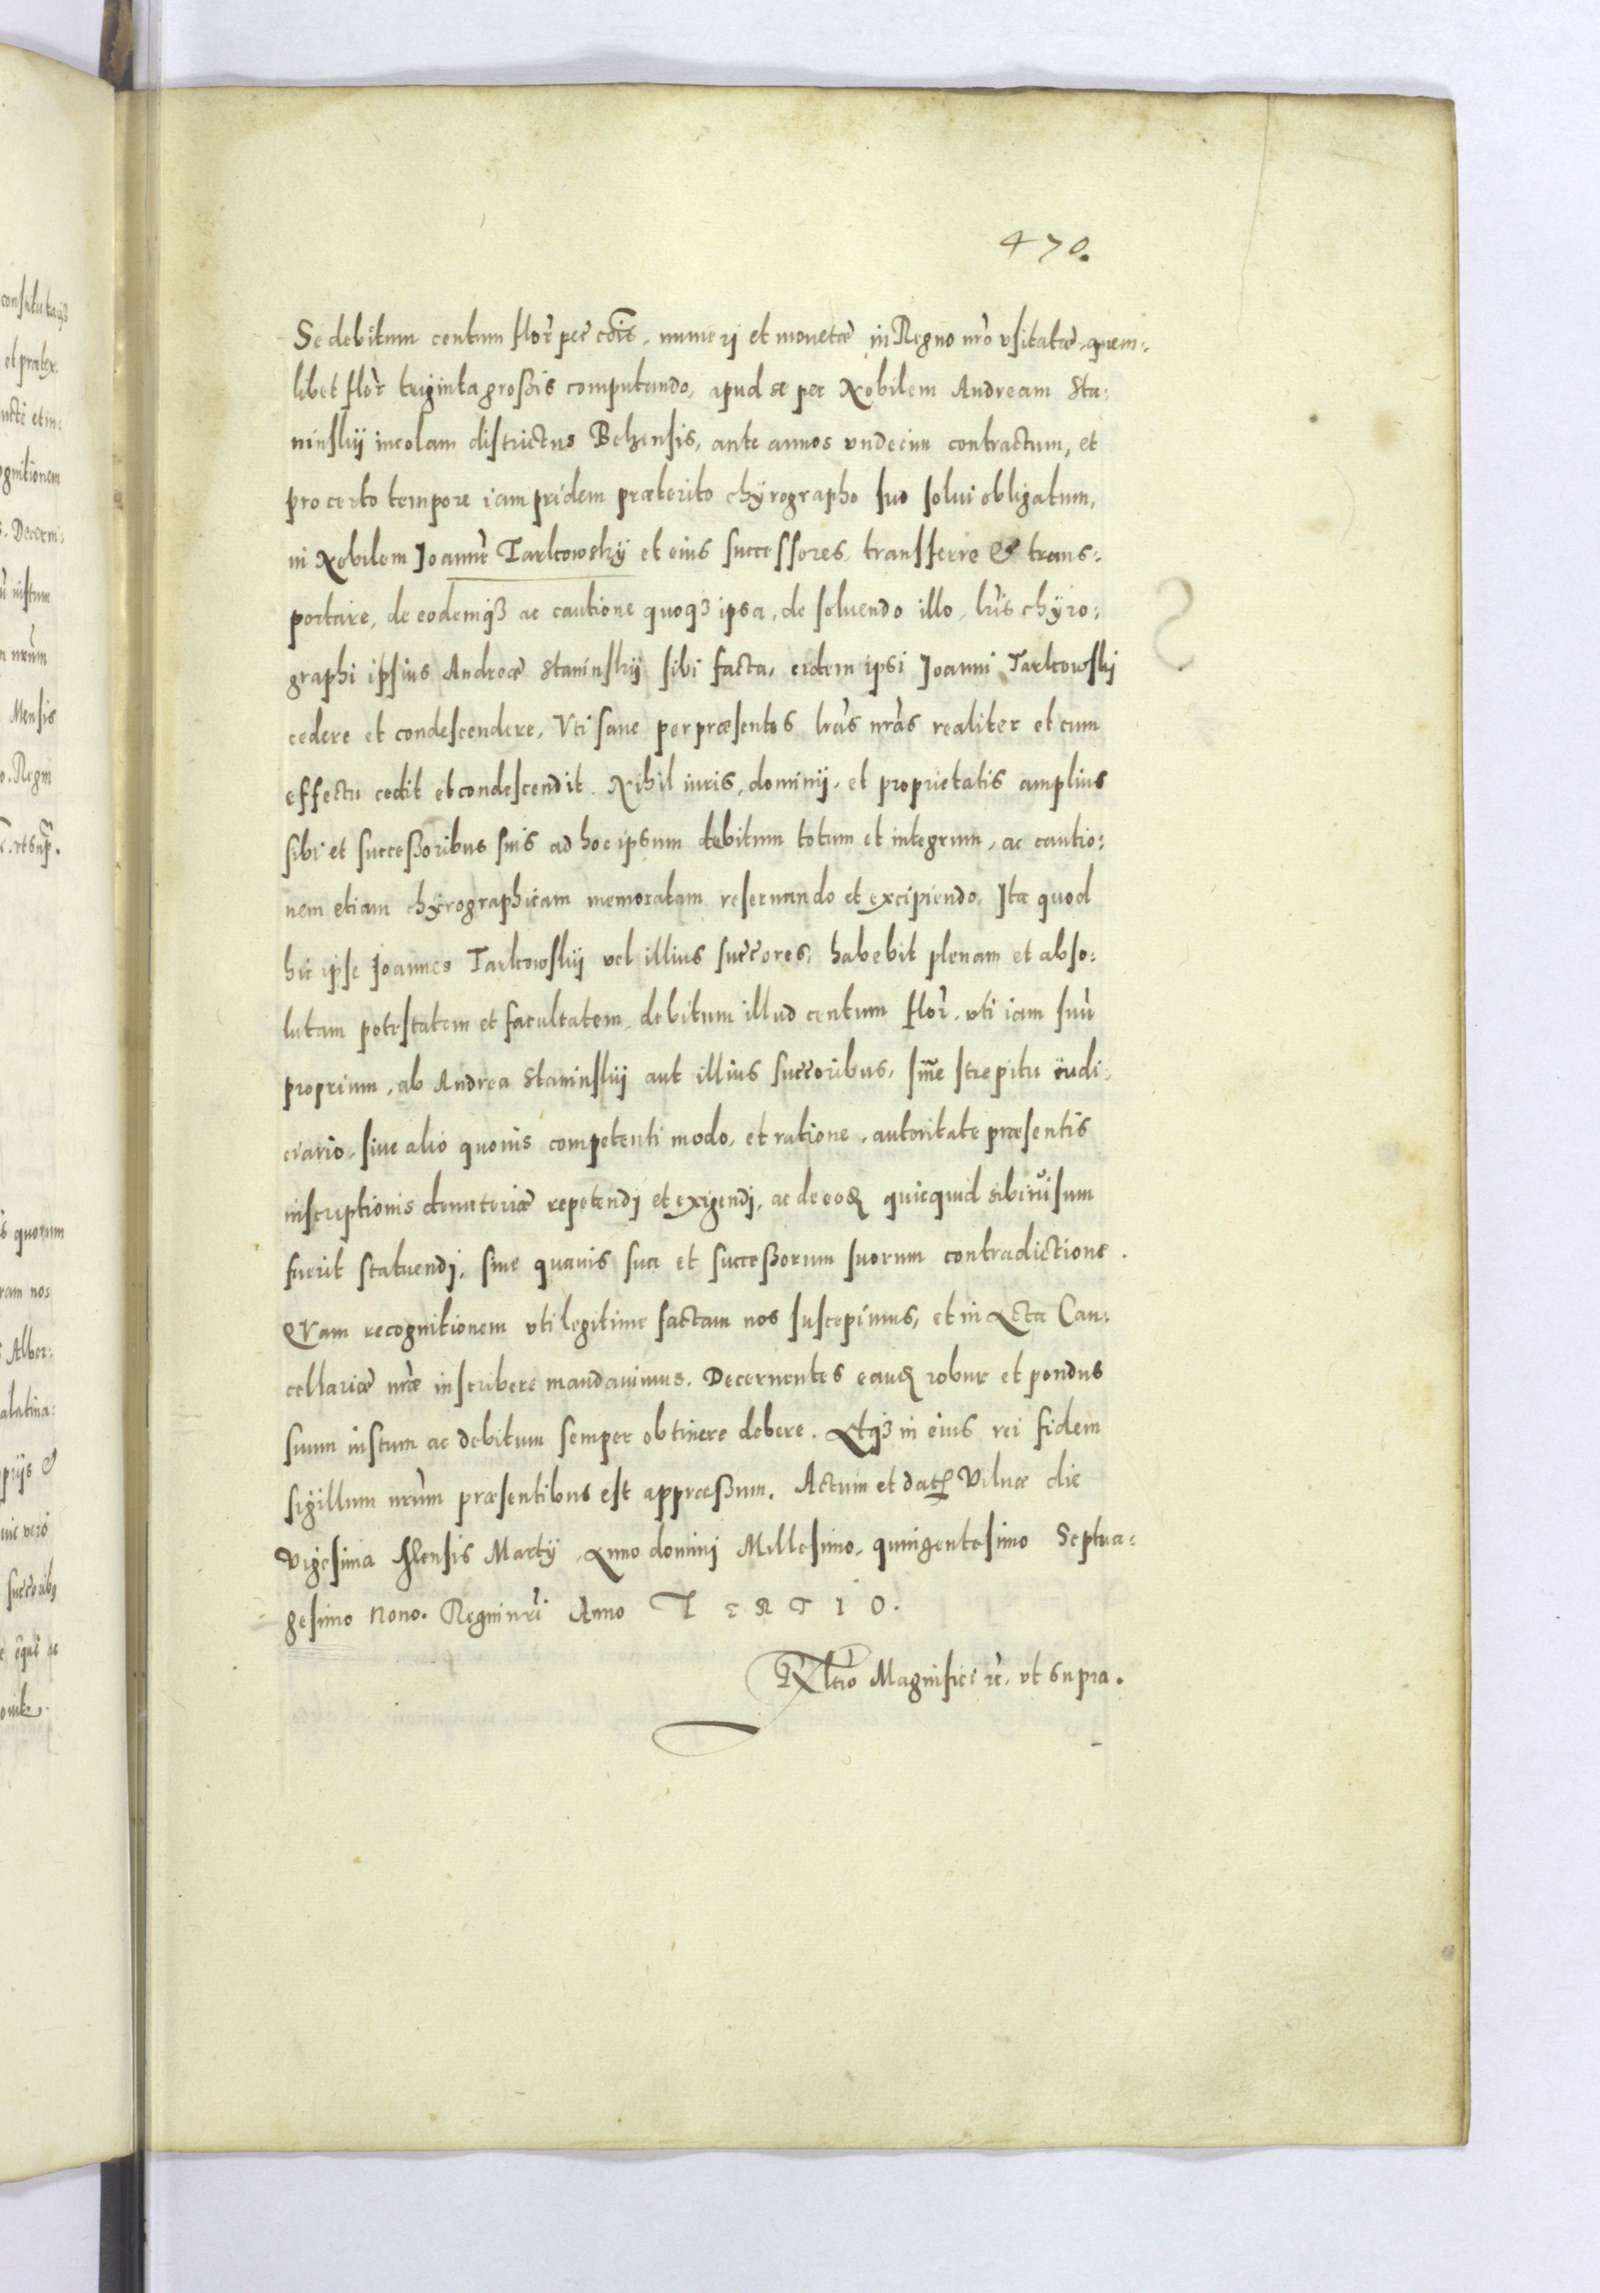 470.
Se debitum centum flor̃ pec̃ co͠is, numeri et monetæ in Regno nr̃o vsitatæ, quem-
libet flor̃ triginta großis computando, apud se per Nobilem Andream Sta-
ninskij incolam districtus Belzensis, ante annos vndecim contractum, et
pro certo tempore iampridem præterito chÿrographo suo solui obligatum,
in Nobilem Joannẽ Tarkowskÿ et eius successores, transferre & trans-
portare, de eodemqȝ ac cautione quoqȝ ipsa, de soluendo illo, lr̃is chÿro-
graphi ipsius Andreæ Staninskij sibi facta, eidem ipsi Joanni Tarkowski
cedere et condescendere, Vti sane per præsentes lr̃as nr̃as realiter et cum
effectu cedit et condescendit. Nihil iuris, dominij, et proprietatis amplius
sibi et succeßoribus suis ad hoc ipsum debitum totum et integrum, ac cautio-
nem etiam chÿrographicam memoratam reseruando et excipiendo. Ita quod
hic ipse Joannes Tarkowskij vel illius succc̃ores, habebit plenam et abso-
lutam potestatem et facultatem, debitum illud centum flor̃, vti iam suũ
proprium, ab Andrea Staninskij aut illius succc̃oribus, siue strepitu iudi-
ciario, siue alio quouis competenti modo, et ratione, autoritate præsentis
inscriptionis donatoriæ repetendi et exigendi, ac de eoꝗ quicquid sibi uisum
fuerit statuendi, sine quauis sua et succeßorum suorum contradictione.
QVam recognitionem vti legitime factam nos suscepimus, et in Acta Can-
cellariæ nr̃æ inscribere mandauimus. Decernentes eanꝗ robur et pondus
suum iustum ac debitum semper obtinere debere. Atqȝ in eius rei fidem
sigillum nr̃um præsentibus est appræßum. Actum et dat̃ Vilnæ die
Vigesima Mensis Martÿ, Anno domini Millesimo, quingentesimo Septua-
gesimo nono. Regni nr̃i Anno TERTIO.
Rel̃tio Magnifici rc̃, vt supra.